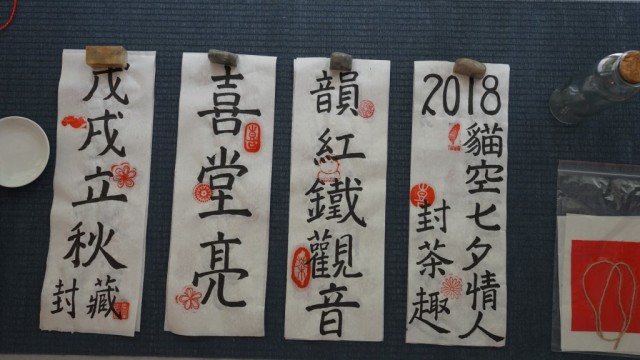 2018
貓空七夕情人
封茶趣
韻紅鐵觀音
喜堂亮
戊戌立秋
封藏